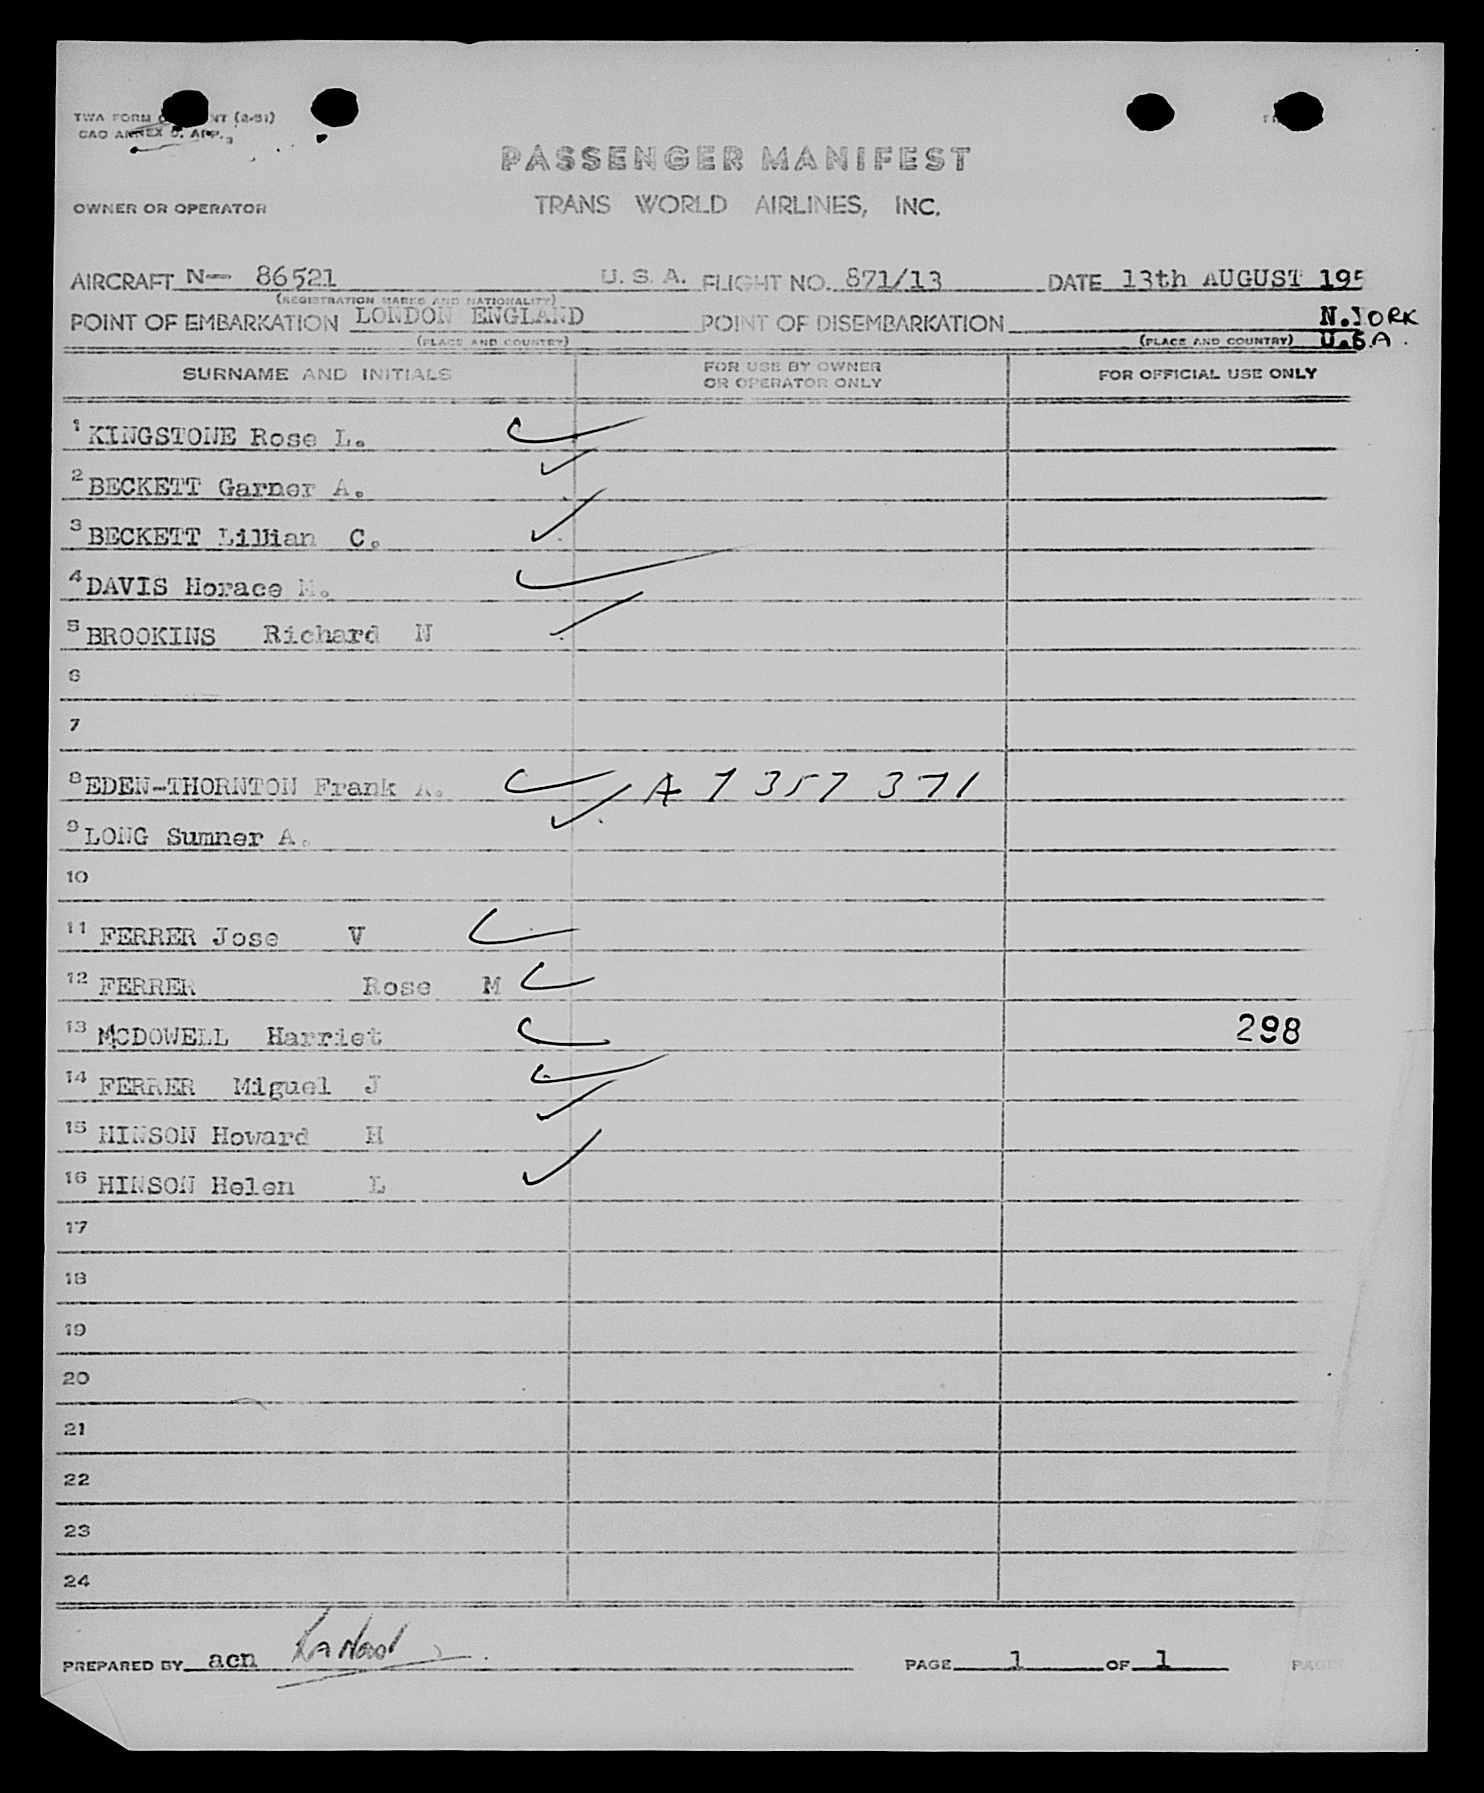 TWA FORM NT (2-51)
CAO ANNEX 9, APP. 3
PASSENGER MANIFEST
OWNER OR OPERATOR TRANS WORLD AIRLINES, INC.
AIRCRAFT N— 86521 U. S. A. FLIGHT NO. 871/13 DATE 13th AUGUST 195
(REGISTRATION MARKS AND NATIONALITY)
POINT OF EMBARKATION LONDON ENGLAND POINT OF DISEMBARKATION N.YORK
(PLACE AND COUNTRY) (PLACE AND COUNTRY) U.S.A.
SURNAME AND INITIALS FOR USE BY OWNER OR OPERATOR ONLY FOR OFFICIAL USE ONLY
1 KINGSTONE Rose L.
2 BECKETT Garner A.
3 BECKETT Lillian C.
4 DAVIS Horace M.
5 BROOKINS Richard N
6
7
8 EDEN-THORNTON Frank A. A 7 357 371
9 LONG Sumner A.
10
11 FERRER Jose V
12 FERRER Rose M
13 MCDOWELL Harriet 298
14 FERRER Miguel J
15 HINSON Howard H
16 HINSON Helen L
17
18
19
20
21
22
23
24
PREPARED BY acn PAGE 1 OF 1